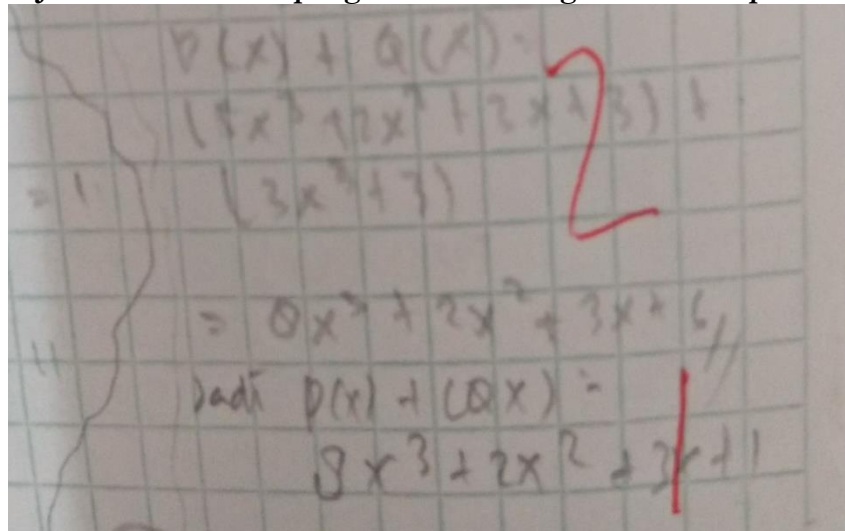 P(x) + Q(x) =
(5x³ + 2x² + 3x + 3) +
(3x³ + 3)
2
= 8x³ + 2x² + 3x + 6 //
Jadi P(x) + (Qx) =
8x³ + 2x² + 3x + 1